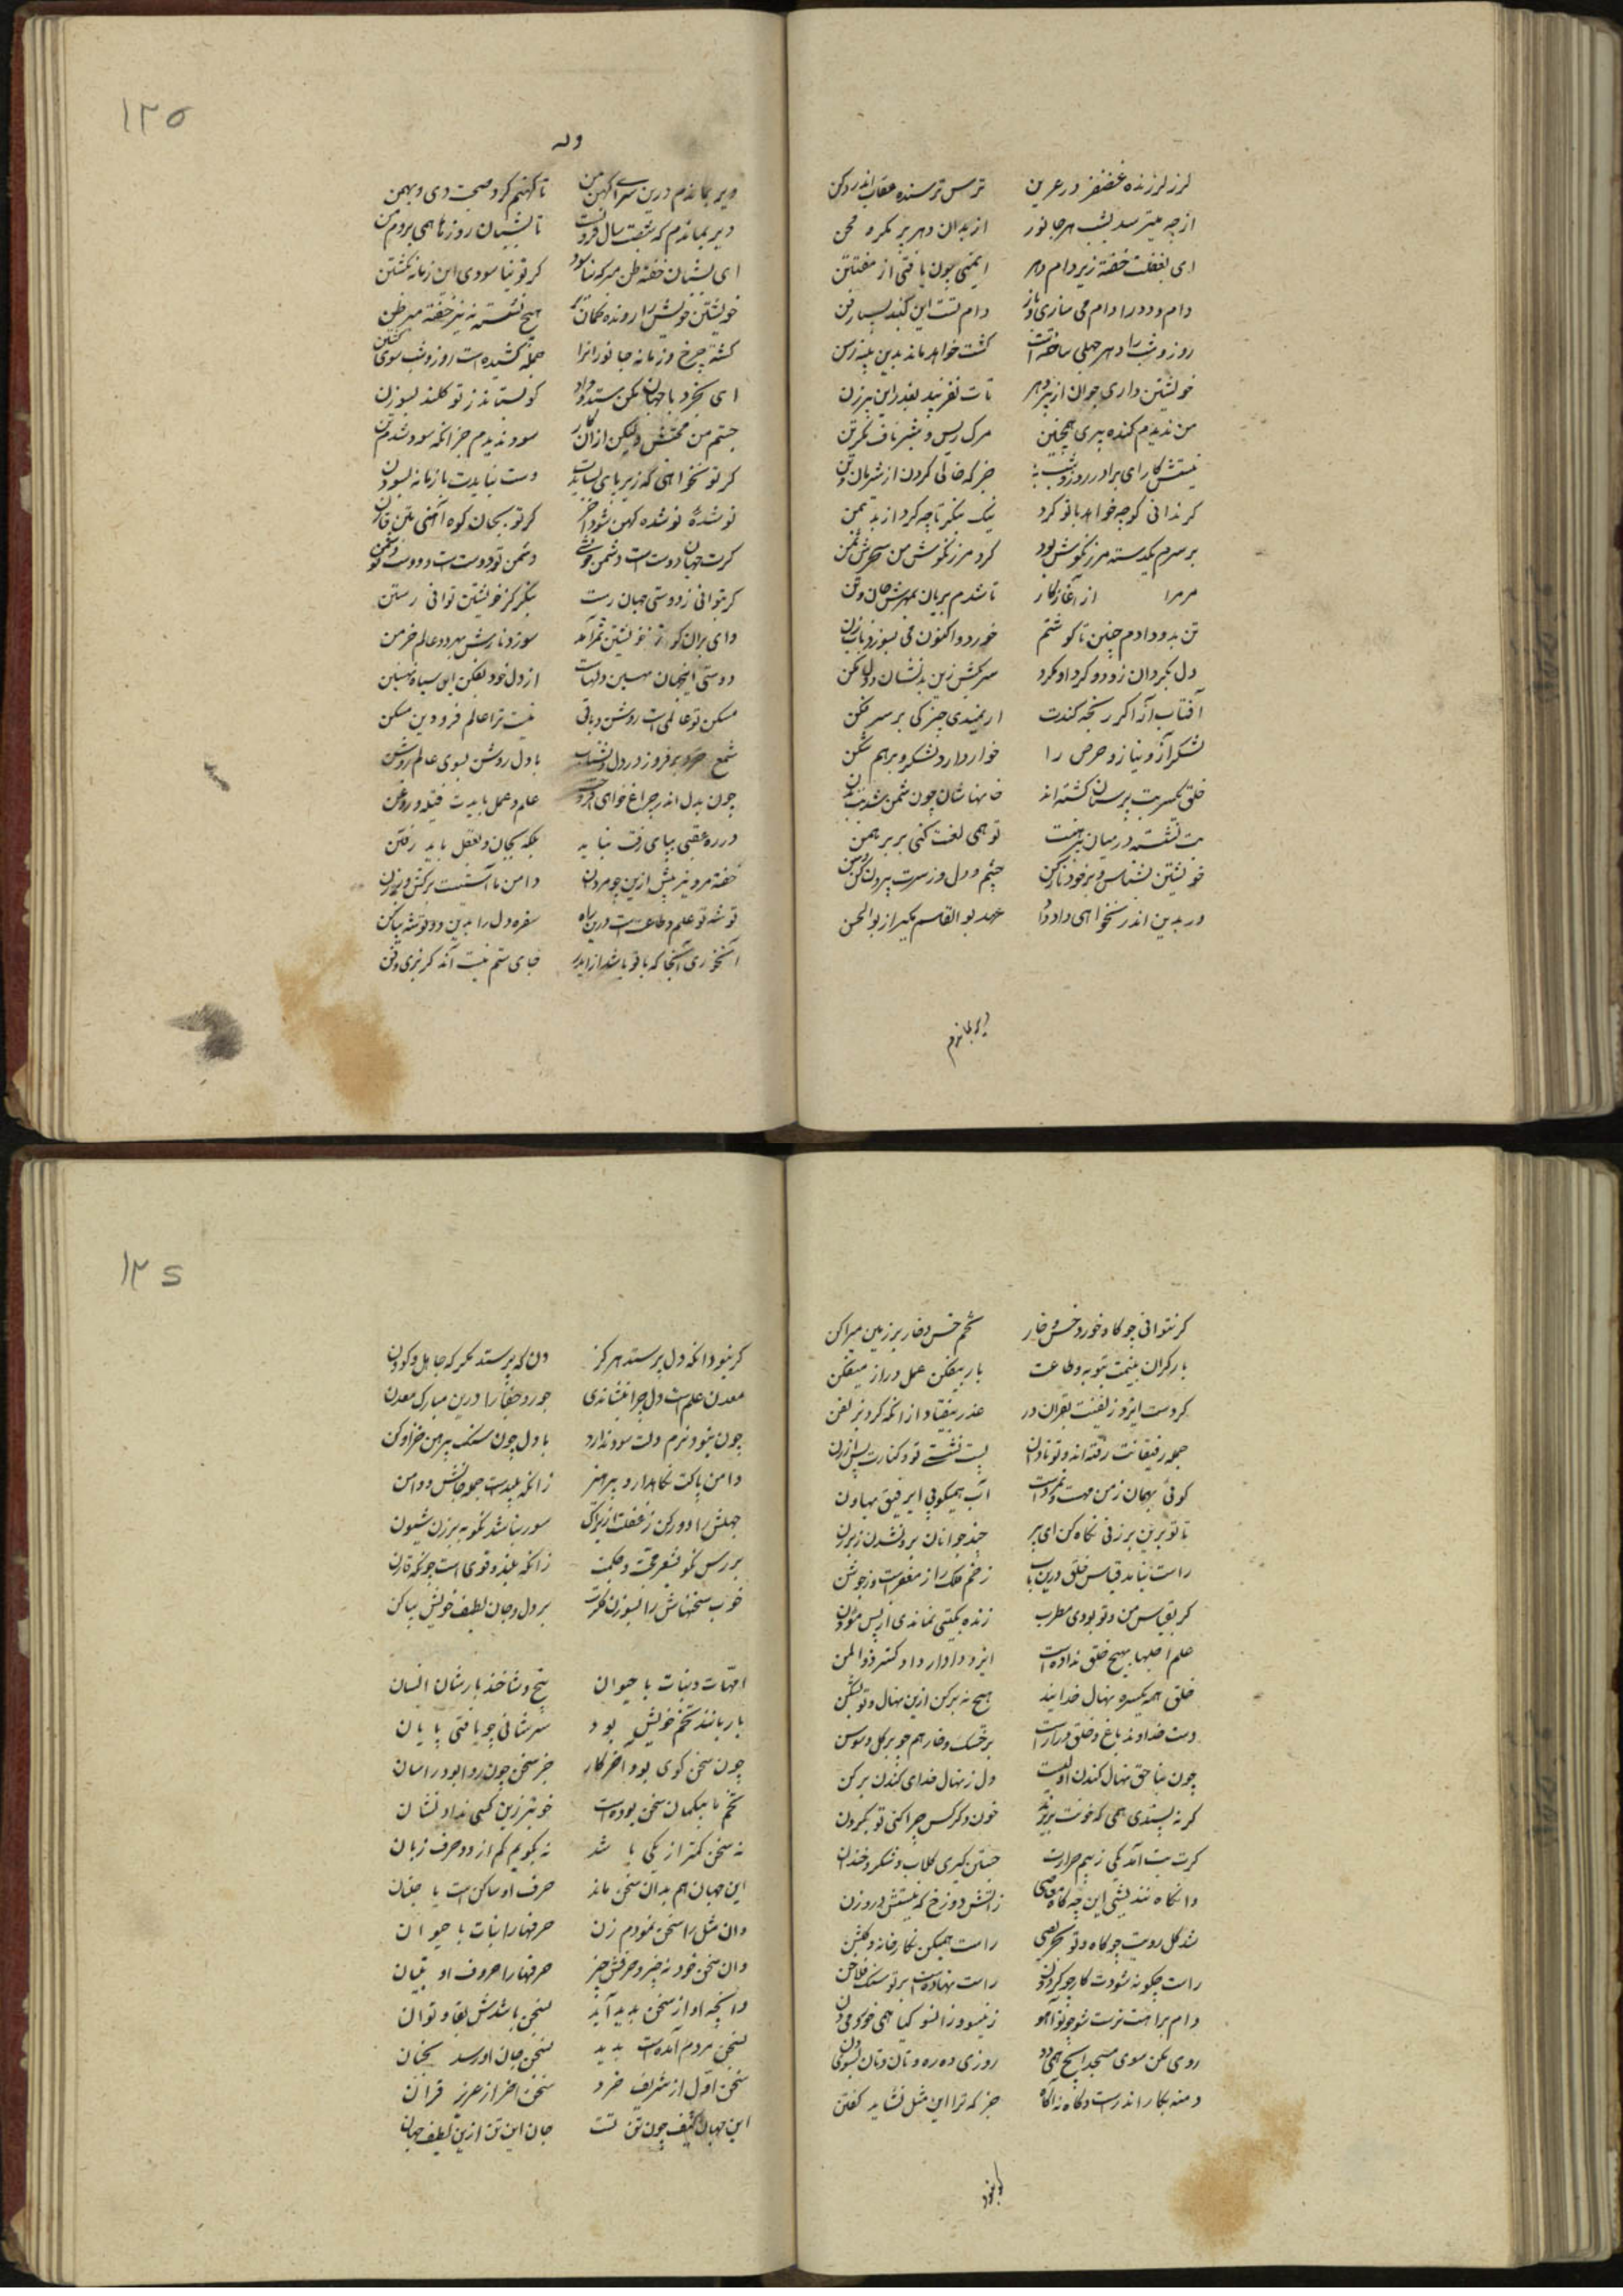 لرز لرزنده غضنفر در عرین ترس ترسنده عقاب اندر وکن
از چه میترسد بشب هر جانور از بدان دهر بر مکره محن
ای بغفلت خفته زیر دام دهر ایمنی چون یافتی از مفتتن
دام و دد را دام می سازی و باز دام تست این گنبد بسیار فن
روز و شب را دهر حبلی ساخته است کشت خواهد ماند بدین پیسه رسن
خویشتن داری جوان از پیر دهر تات نفریبد بغدر این پیرزن
من ندیدم گنده پیری همچنین مرگ ریس و شر باف و مکرتن
نیستش کار ای برادر روز و شب جز که خالی کردن از شویان وثن
گر ندانی کو چه خواهد با تو کرد نیک بنگر تا چه کرد از بد بمن
بر سرم یکدسته مرزنگوش بود کرد مرزنگوش من سحرش سمن
مر مرا از آغاز کار تا شدم بریان بمهرش جان و تن
تن بدو دادم چنین تا گوشتم خورد و اکنون می بسوزد بابزن
دل بگردان زود و گرد او مگرد سر بکش زین بدنشان و دل بکن
آفتاب آز اگر رنجه کندت از خرسندی چترکی بر سر فکن
لشکر آز و نیاز و حرص را خوار دار و لشکر و برهم شکن
خلق یکسر بت پرستان گشته اند خانهاشان چون شمن شد پر شمن
بت نشسته در میان پیرهنت تو همی لعنت کنی بر برهمن
خویشتن بشناس و بر خود باز کن چشم دل وز سرت بیرون کن وسن
ور بدین اندر نخواهی داد داد عهد بوالقاسم بگیر از بوالحسن
دیر بماندم
۱۲۵
وله
دیر بماندم درین سرای کهن من تا کهنم کرد صحبت دی و بهمن
دیر بماندم که شصت سال فزونست تا بشبان روزها همی بروم من
ای بشبان خفته ظن مبر که نیاسود گر تو نیاسودی این زمانه بگشتن
خویشتن خویش را رونده گمان بر هیچ نشسته نه نیز خفته مبر ظن
گشتن چرخ و زمانه جانورانرا جمله کشیده است روز و شب سوی گشتن
ای بخرد با جهان مکن ستد و داد کو بستاند ز تو کلند بسوزن
جستم من صحبتش ولیکن ازان کار سود ندیدم جز آنکه سوده شدم تن
گر تو نخواهی که زیر پای بساید دست نباید با زمانه بسودن
نو شدهٔ نو شده کهن شود آخر گر تو بجان کوه آهنی بتن قارن
گرت جهان دوستست دشمن خویشی دشمن تو دوستست و دوست تو دشمن
گر بتوانی ز دوستی جهان رست بنگر کز خویشتن توانی رستن
وای بران کو ز خویشتن نه برآمد سوزد نارش بهر دو عالم خرمن
دوستی این جهان نهنبن دلهاست از دل خود بفکن این سیاه نهنبن
مسکن تو عالمیست روشن و باقی نیست ترا عالم فرودین مسکن
شمع خرد برفروز در دل و بشتاب با دل روشن بسوی عالم روشن
چون بدل اندر چراغ خواهی افروخت علم و عمل بایدت فتیله و روغن
در ره عقبی بپای رفت نباید بلکه بجان و بعقل باید رفتن
خفته مرو نیز بیش ازین چو مردان دامن با آستینت برکش و برزن
توشه تو علم و طاعتست درین راه سفره دل را بدین دو توشه بیاکن
آنخوری آنجا که با تو باشد از ایدر جای ستم نیست آن گر نبری و فن
۱۲۶
گر نتوانی چو گاو خورد خس و خار تخم خس و خار بر زمین مپراکن
بار گران بینمت بتوبه و طاعت بار بیفکن عمل دراز میفکن
کردست ایزد زلیفنت بقران در عذر بیفتاد از آنکه کرد زلیفن
جمله رفیقانت رفته اند و تو نادان پست نشستی تو و کنارت پر ارزن
گوئی بهمان ز من مهست و نمرده است آب همیکوبی ای رفیق بهاون
تا تو برین بر زنی نگاه کن ای پیر چند جوانان برون شدند ز برزن
راست نباید قیاس خلق درین باب زخم فلک را نه مغفرست و نه جوشن
گر بقیاس من و تو بودی مطرب زنده بگیتی نماندی از پس مؤذن
علم اجلها بهیچ خلق نداده است ایزد دادار داد گستر ذوالمن
خلق همه یکسره نهال خدایند هیچ نه برکن ازین نهال و نه بشکن
دست خداوند باغ خلق درازست بر خسک و خار هم چو بر گل و سوسن
چون بناحق نهال کندن او نیست دل ز نهال خدای کندن برکن
گر نه پسندی همی که خونت بریزند خون دگر کس چرا کنی تو بگردن
گرت تب آمد یکی ز بیم حرارت جستن گیری گلاب و شکر و چندن
وانگاه نندیشی این چه گاه معاصی زآتش دوزخ که نیستش در و روزن
شد گل رویت چو کاه و تو بحریصی راست همیکن نگارخانه و گلشن
راست چگونه شودت کار چو گردون راست نهادست بر تو سنگ فلاخن
دام براهت پرست شو چو آهو زینسو و زانسو گیا همی خور و می دن
روی مکن سوی مسجد ایچ همی دو روزی ده ره دنان دنان بسوی دن
دمنه بکار اندرست و گاو نه آگاه جز که ترا این مثل نشاید گفتن
گر نبود
گر نبود آنکه دل پرستد هرگز دن که پرستد مگر که جاهل و کودن
معدن علمست دل چرا بنشاندی جور و جفا را درین مبارک معدن
چون نبود نرم دلت سود ندارد با دل چون سنگ پیرهن خز ادکن
دامن پاکت نگاهدار و بپرهیز زانکه پلیدست جمله جانش و دامن
جهلش را دور کن ز عقلت ازیراک سور نباشد نکو ببرزن شیون
بررس نیکو بشعر حجت و حکمت زانکه بلند و قوی است چون که قارن
خوب سخنهاش را بسوزن فکرت بر دل و جان لطیف خویش بیاکن
امهات و نبات با حیوان بیخ و شاخند و بارشان انسان
بار ماننده تخم خویش بود سر بیابی چو یافتی پایان
چون سخن گوی بود آخر کار جز سخن چون روا بود ز آسان
تخم ما بیگمان سخن بوده است خوبتر زین کسی نداد نشان
نه سخن کمتر از یکی باشد نه بگویم کم از دو حرف زبان
این جهان هم بدان سخن ماند حرف او ساکنست با جنبان
وان مثل را سخن نمودم زن حرفها را نبات با حیوان
وان سخن خود نه چیز و حرفش چیز حرفها را حروف او بنیان
وانچه او از سخن پدید آید بسخن باشدش بقا و توان
بسخن مردم آمدست پدید بسخن جان او رسد بجنان
سخن اول از شریف خرد سخن آخر از عزیز قران
این جهان کثیف چون تن تست جان این تن ازین لطیف جهان